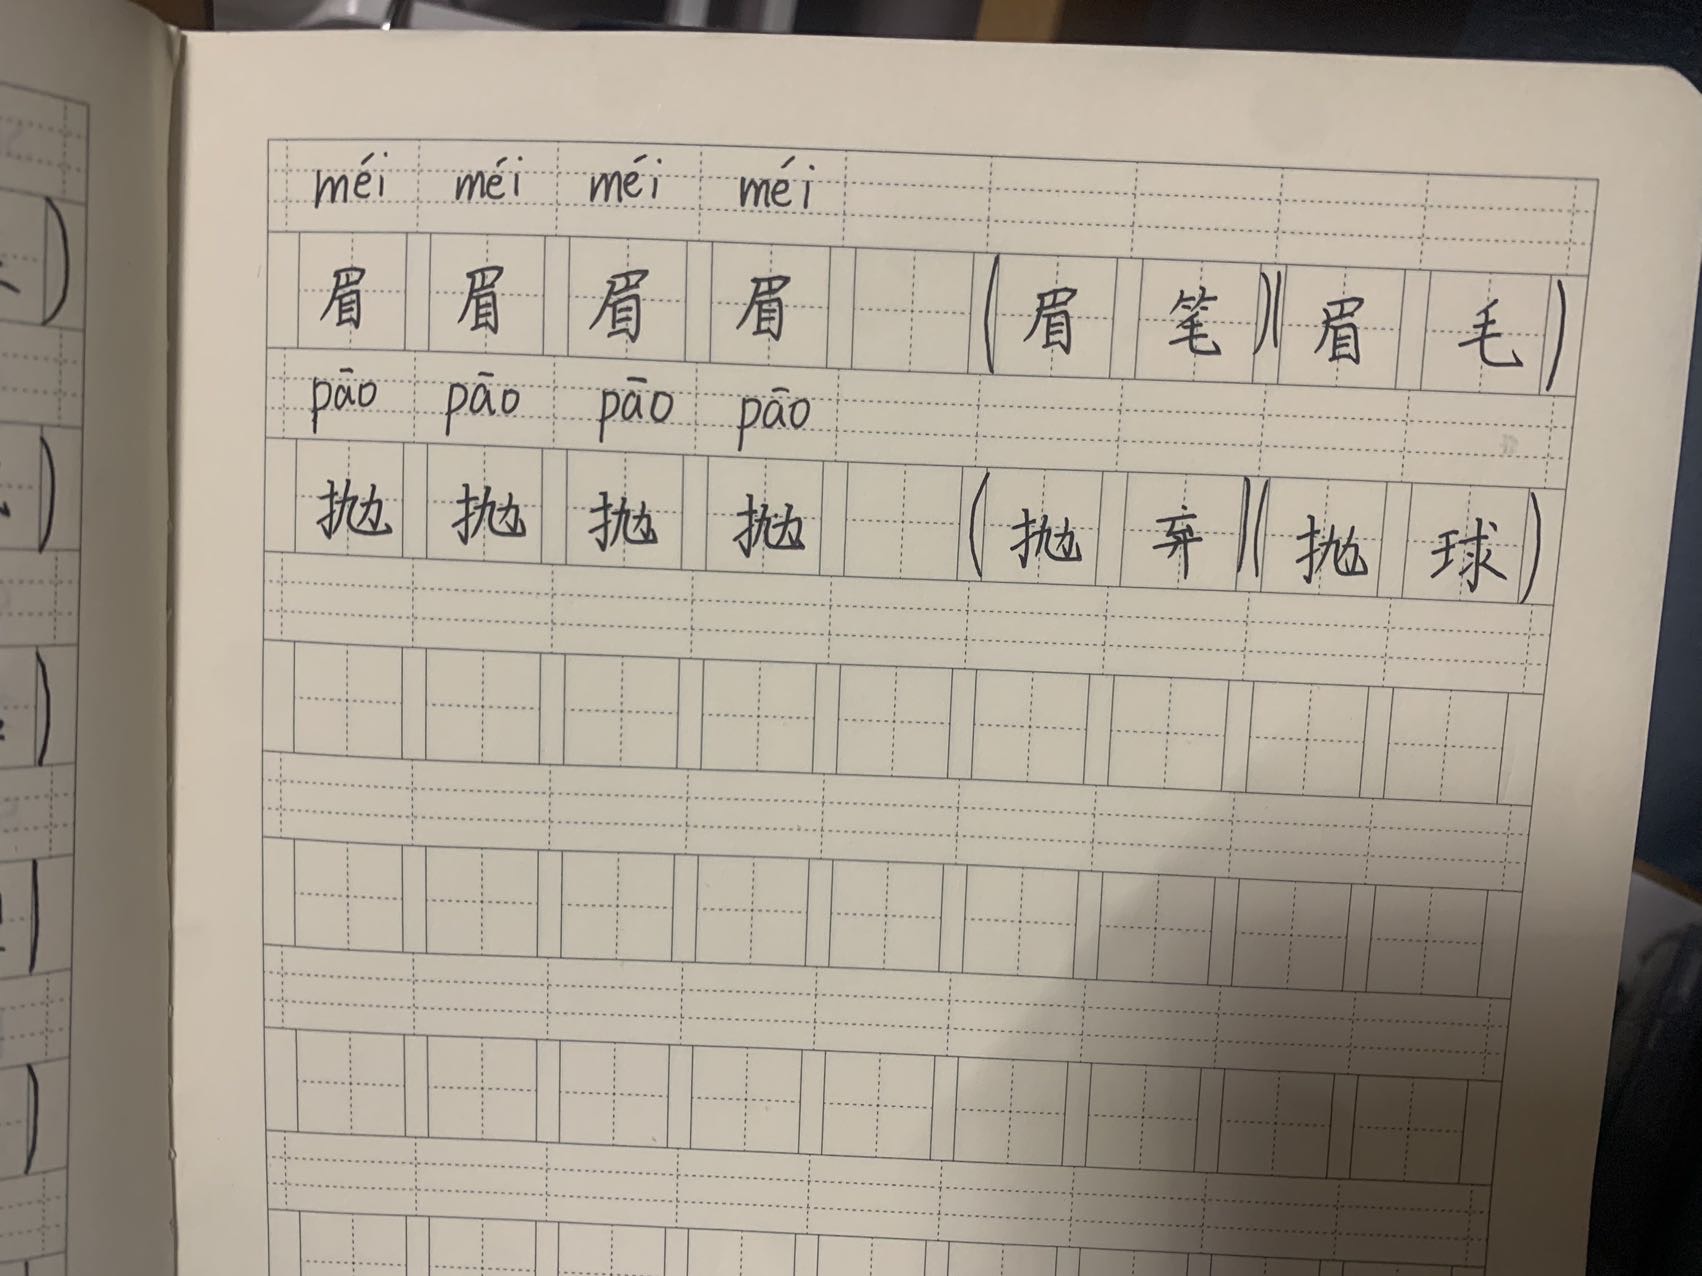 méi méi méi méi
眉 眉 眉 眉 (眉笔)(眉毛)
pāo pāo pāo pāo
抛 抛 抛 抛 (抛弃)(抛球)